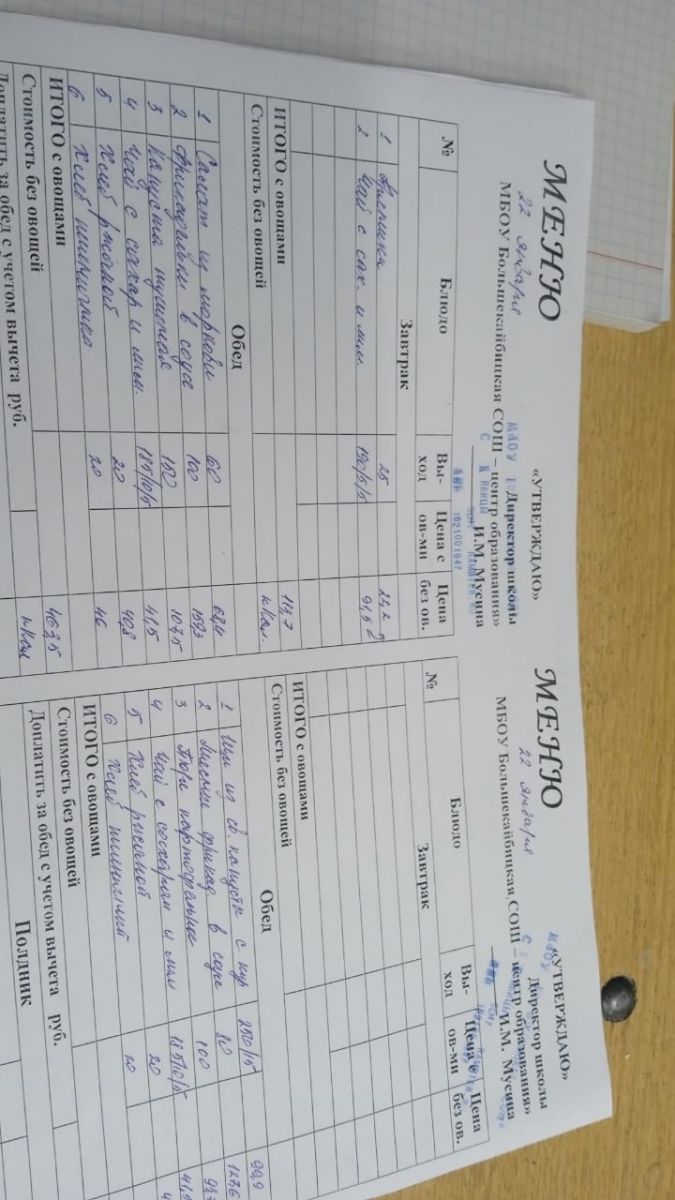 МЕНЮ
22 января
МБОУ Большекайбицкая СОШ – центр образования»
«УТВЕРЖДАЮ»
Директор школы
И.М. Мусина
№ Блюдо Вы-ход Цена с ов-ми Цена без ов.
Завтрак
1 25 21,2
2 Чай с сах. и лим. 190/5/5 91,5
ИТОГО с овощами 113,7
Стоимость без овощей ккал.
Обед
1 Салат из моркови 60
2 в соусе 100
3 Капуста тушеная 150 107,5
4 Чай с сахар и лим. 185/10/5 41,5
5 Хлеб ржаной 20 40,8
6 Хлеб пшеничный 20 46
ИТОГО с овощами 463,5
Стоимость без овощей ккал
Доплатить за обед с учетом вычета руб.
МЕНЮ
22 января
МБОУ Большекайбицкая СОШ – центр образования»
«УТВЕРЖДАЮ»
Директор школы
И.М. Мусина
№ Блюдо Вы-ход Цена с ов-ми Цена без ов.
Завтрак
ИТОГО с овощами
Стоимость без овощей
Обед
1 Щи из св. капусты с кур 250/15 99,9
2 в соусе 80 127,6
3 Пюре картофельное 100
4 Чай с сахаром и лим 185/10/5
5 Хлеб ржаной 20
6 Хлеб пшеничный 20
ИТОГО с овощами
Стоимость без овощей
Доплатить за обед с учетом вычета руб.
Полдник